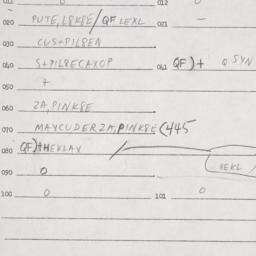 011 0 012 0
020 PUTE, L8K8E/QF LEXL 021 —
030 CUS+PIL8EN
040 S+PIL8ECAXOP 041 QF)+ Q SYN
050 +
060 ZA, PINK8E
070 MAYCUDERZA, PINK8E (445
080 QF)+HEKLAV
HEKL
090 0
100 0 101 0